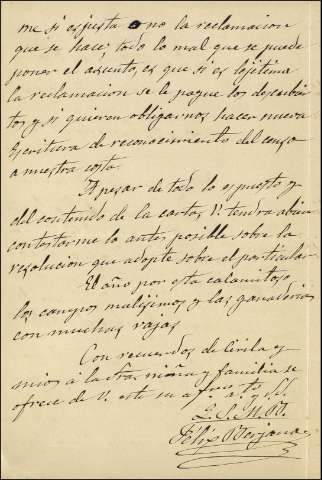 me si es justa o no la reclamacion
que se hace; todo lo mal que se puede
poner el asunto, es que si es lejitima
la reclamacion se le pague los descubier
tos y si quieren obligarnos hacer nueva
escritura de reconocimiento del censo
a nuestra costa.
Apesar de todo lo espuesto y
del contenido de la carta, V. tendra abien
contestarme lo antes posible sobre la
resolucion que adopte sobre el particular.
El año por esta calamitoso
los campos malisimos y las ganaderias
con muchas rajas
Con recuerdos de Cirila y
mios á la Sra, niña y familia se
ofrece de V. este su af. s. y S.
Q. S. M. B.
Félix